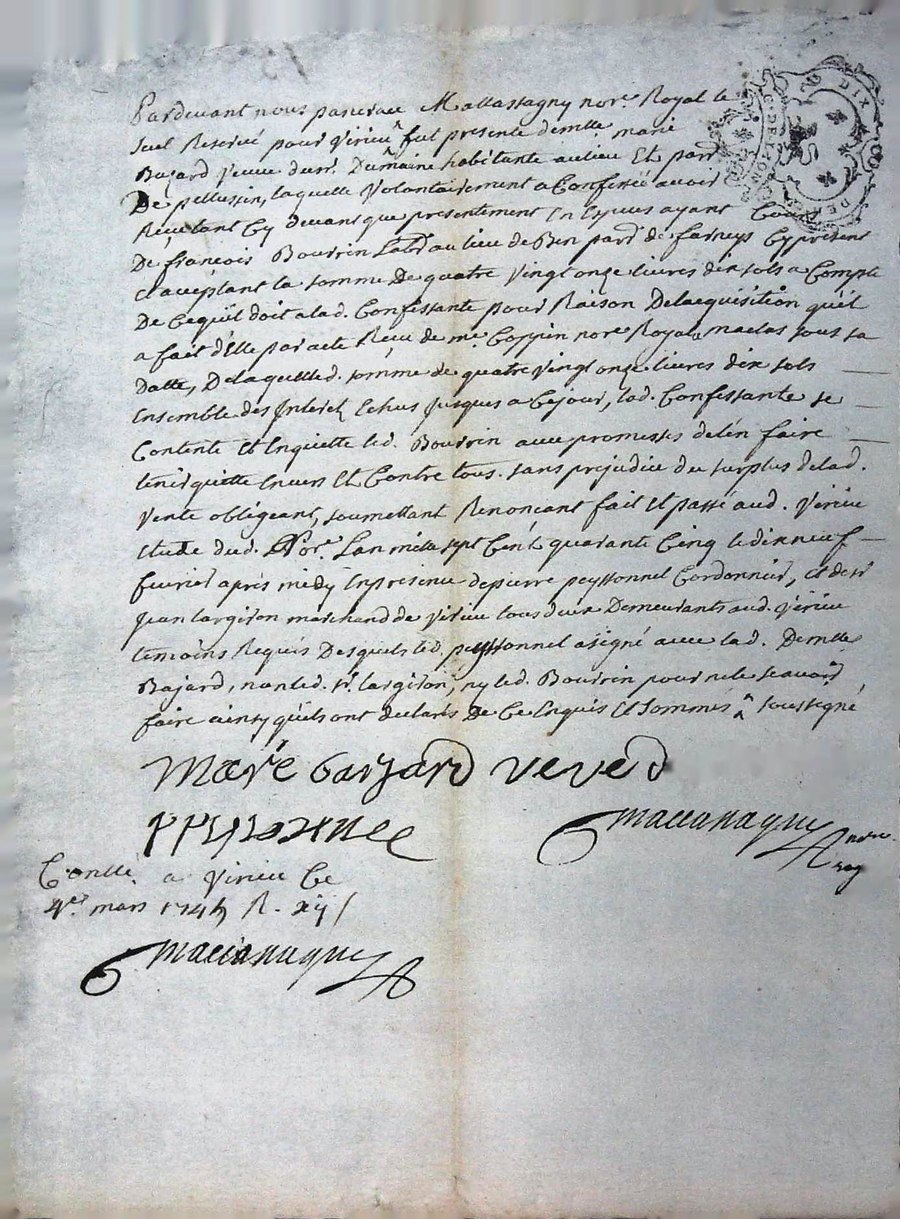 Pardevant nous pancrace Mallassagny nore. Royal le
seul Reservé pour Virieu, fut presente demlle marie
Bajard veuve du sr. Dumaine habitante au lieu Et parr
De pellussin, laquelle volontairement a Confessé avoir
Reçu tant cy devant que presentement En Especes ayant Cours
De francois Bourrin Labr au lieu de Ben parr. de farneys cy present
Et acceptant la somme De quatre vingt onze livres dix sols a Compte
De Ce quil doit a lad. Confessante pour Raison De lacquisition quil
a fait d'Elle par acte Reçu de me. Coppin nore Royal a maclas sous sa
Datte, De laquelled. somme de quatre vingt onze livres dix sols
Ensemble des Interets Echus jusques a Cejour, lad. Confessante se
Contente Et Enquitte led. Bourrin avec promesses de len faire
tenir quitte Envers Et Contre tous. sans prejudice du surplus de lad.
vente obligeant, soumettant Renonçant fait Et passé aud. Virieu
Etude dud. Nore. Lan mille sept Cent quarante Cinq le dix neuf
fevrier après midy En presence de pierre peyssonnel Cordonnier, Et de sr
jean largiron marchand de Virieu tous deux Demeurants aud. Virieu
temoins Requis Desquels led. peyssonnel a signé avec lad. Demlle
Bajard, non led. sr. largiron, ny led. Bourrin pour ne le scavoir
faire ainsy quils ont declaré De Ce Enquis Et Sommés soussigné
Marie barjard veve D
ppeyssonnel
mallassagny nore roy
Contllé a Virieu Ce
4er. mars 1745 R. xij s
mallassagny
DIX
DE